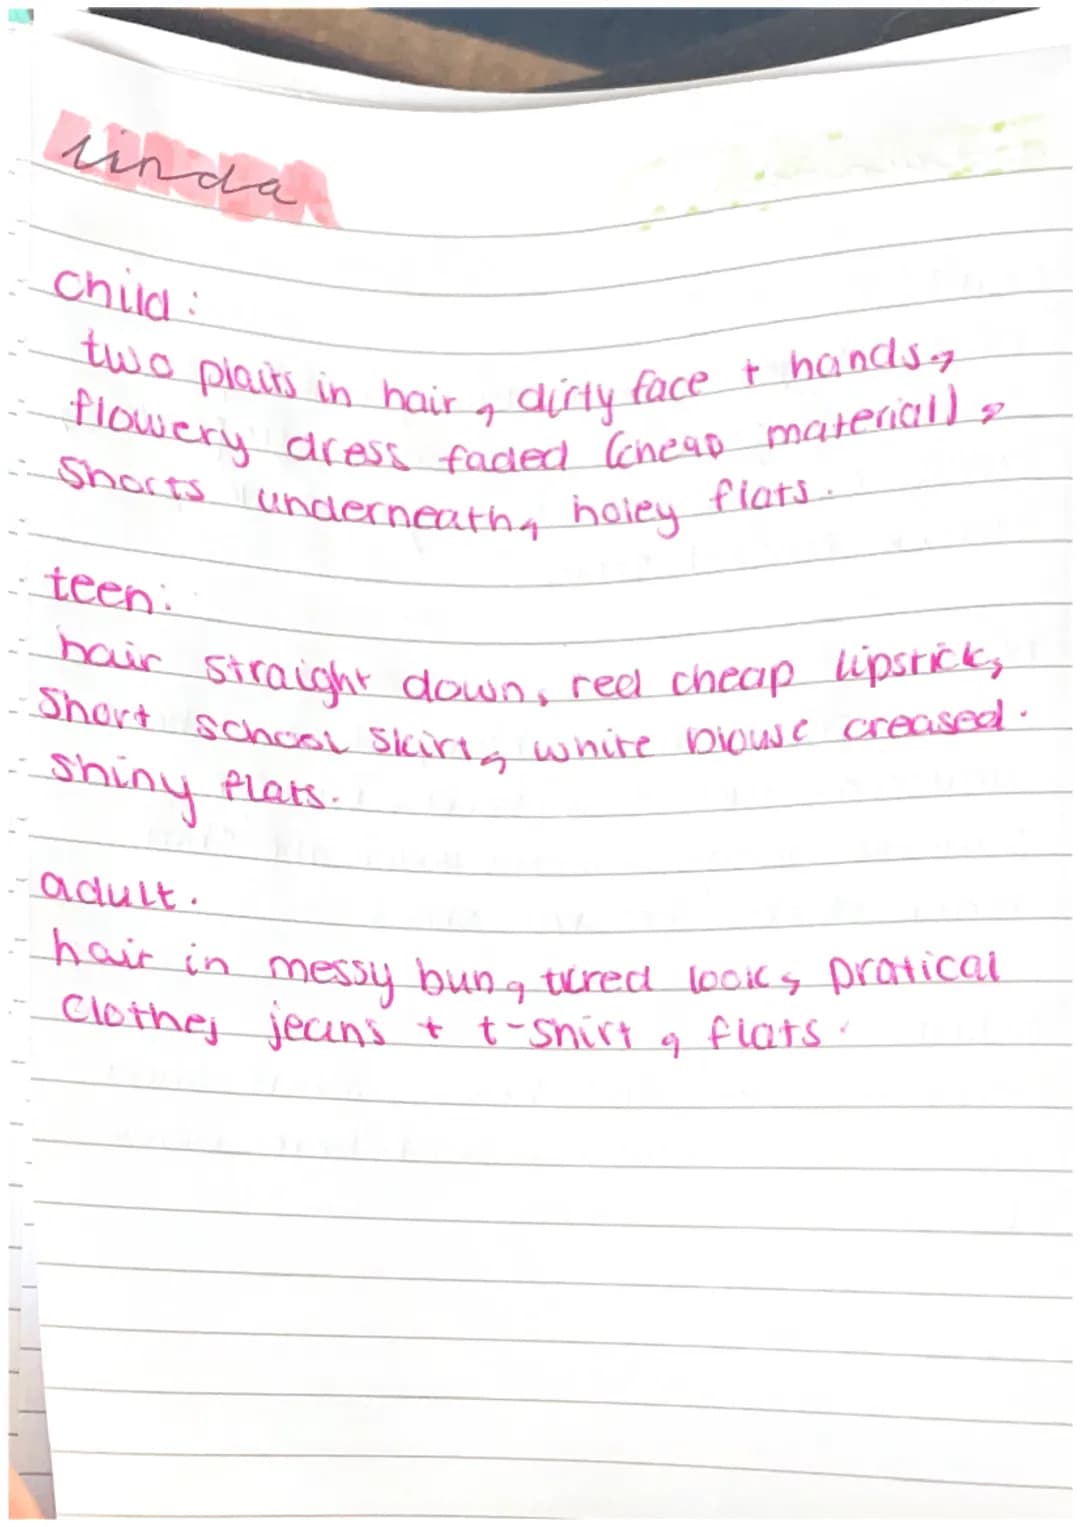 linda
child:
two plaits in hair, dirty face + hands,
flowery dress faded (cheap material),
Shorts underneath, holey flats.
teen:
hair straight down, red cheap lipstick,
Short school skirt, white blouse creased.
shiny flats.
adult.
hair in messy bun, tired look, pratical
Clothes jeans + t-shirt, flats.